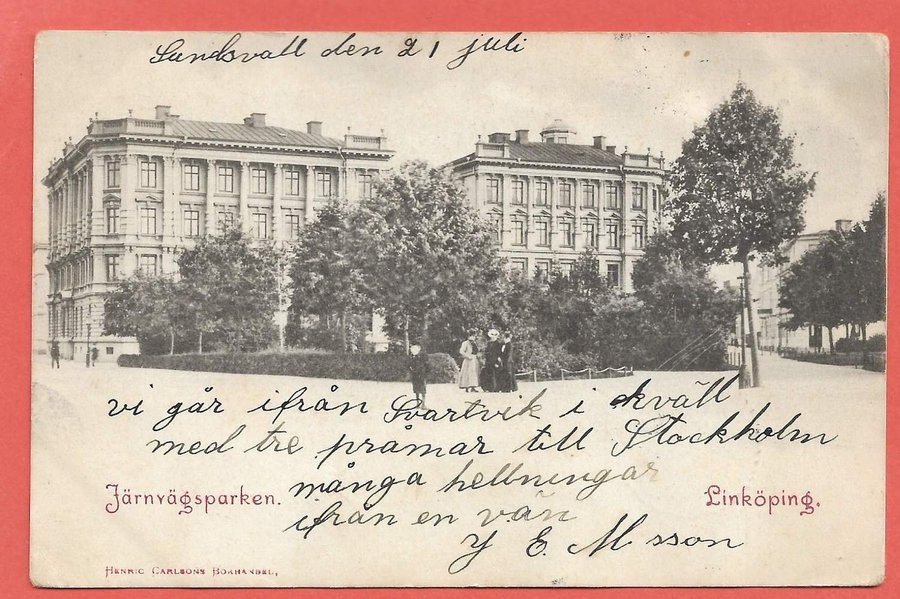 Sundsvall den 21 juli
vi går ifrån Svartvik i kväll
med tre pråmar till Stockholm
många hellningar
ifrån en vän
E. M sson
Järnvägsparken.
Linköping.
HENRIC CARLSONS BOKHANDEL,